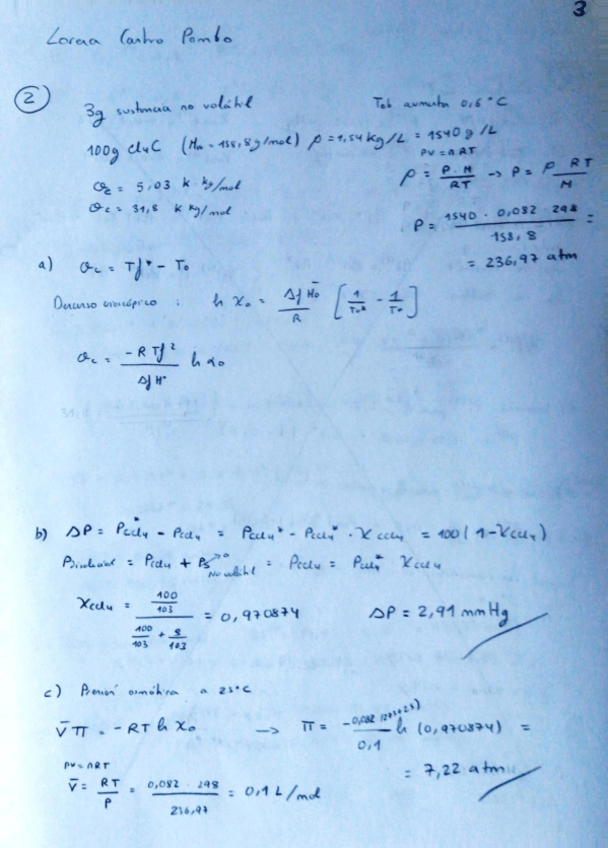 3
Lorena Castro Pombo
2
3g sustancia no volátil Teb aumenta 0,6°C
100g Cl4C (Mm = 158,8g/mol) ρ = 1,54 kg/L = 1540 g/L
PV = nRT
ρ = P·M / RT → P = ρ RT / M
= 5,03 K kg/mol
θc = 31,8 K kg/mol
P = 1540 · 0,082 · 298 / 158,8 =
= 236,97 atm
a) θc = Tf* - To
Descenso crioscópico : ln Xo = ΔfHo / R [ 1/To* - 1/To ]
θc = -R Tf² / ΔfH° ln xo
b) ΔP = P*CCl4 - PCCl4 = PCCl4* - PCCl4* · XCCl4 = 100 (1-XCCl4)
= PCCl4 + Ps →0 No volátil = PCCl4 = PCCl4* XCCl4
XCCl4 = 100/103 / 100/103 + 3/103 = 0,970874 ΔP = 2,91 mmHg
c) Presión osmótica a 25°C
V̄ π = -RT ln Xo → π = -0,082 (273+25) / 0,1 ln (0,970874) =
= 7,22 atm
PV = nRT
V̄ = RT / P = 0,082 · 298 / 236,97 = 0,1 L/mol